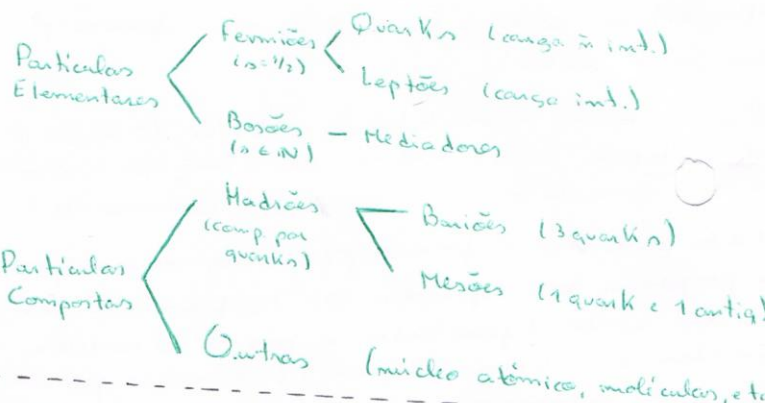 Partículas Elementares
Fermiões (s=1/2)
Quarks (carga ñ int.)
Leptões (carga int.)
Bosões (s ∈ ℕ) – Mediadores
Partículas Compostas
Hadrões (comp. por quarks)
Bariões (3 quarks)
Mesões (1 quark e 1 antiq)
Outras (núcleo atómico, moléculas, etc